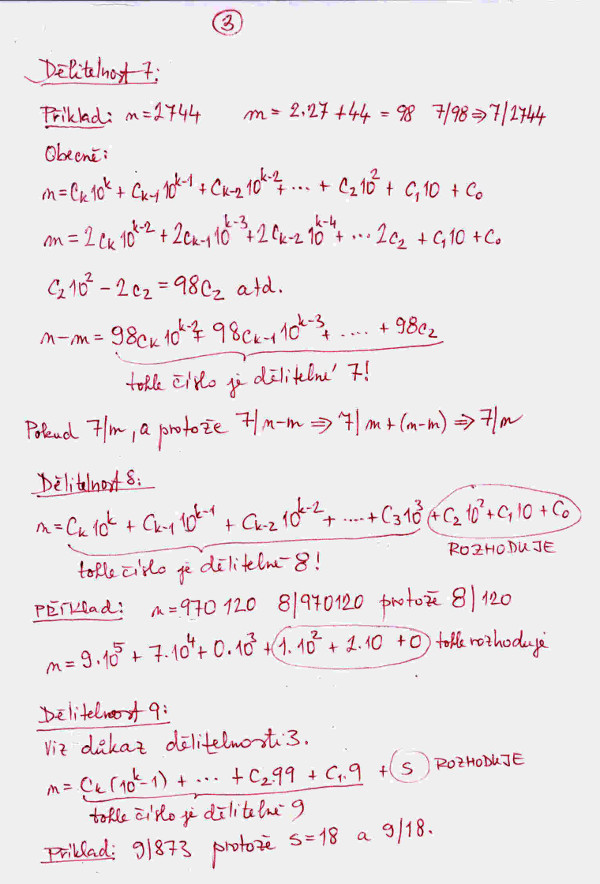 3
Dělitelnost 7:
Příklad: n=2744 m = 2.27+44 = 98 7/98 ⇒ 7/2744
Obecně:
n = Ck 10^k + Ck-1 10^k-1 + Ck-2 10^k-2 + ... + C2 10^2 + C1 10 + C0
m = 2Ck 10^k-2 + 2Ck-1 10^k-3 + 2Ck-2 10^k-4 + ... 2C2 + C1 10 + C0
C2 10^2 - 2C2 = 98C2 atd.
n-m = 98Ck 10^k-2 + 98Ck-1 10^k-3 + .... + 98C2
tohle číslo je dělitelné 7!
Pokud 7/m, a protože 7/n-m ⇒ 7/m+(n-m) ⇒ 7/n
Dělitelnost 8:
n = Ck 10^k + Ck-1 10^k-1 + Ck-2 10^k-2 + .... + C3 10^3 + C2 10^2 + C1 10 + C0
tohle číslo je dělitelné 8! ROZHODUJE
PŘÍKLAD: n=970 120 8/970120 protože 8/120
n = 9.10^5 + 7.10^4 + 0.10^3 + 1.10^2 + 2.10 + 0 tohle rozhoduje
Dělitelnost 9:
Viz důkaz dělitelnosti 3.
n = Ck(10^k-1) + ... + C2.99 + C1.9 + S ROZHODUJE
tohle číslo je dělitelné 9
Příklad: 9/873 protože S=18 a 9/18.